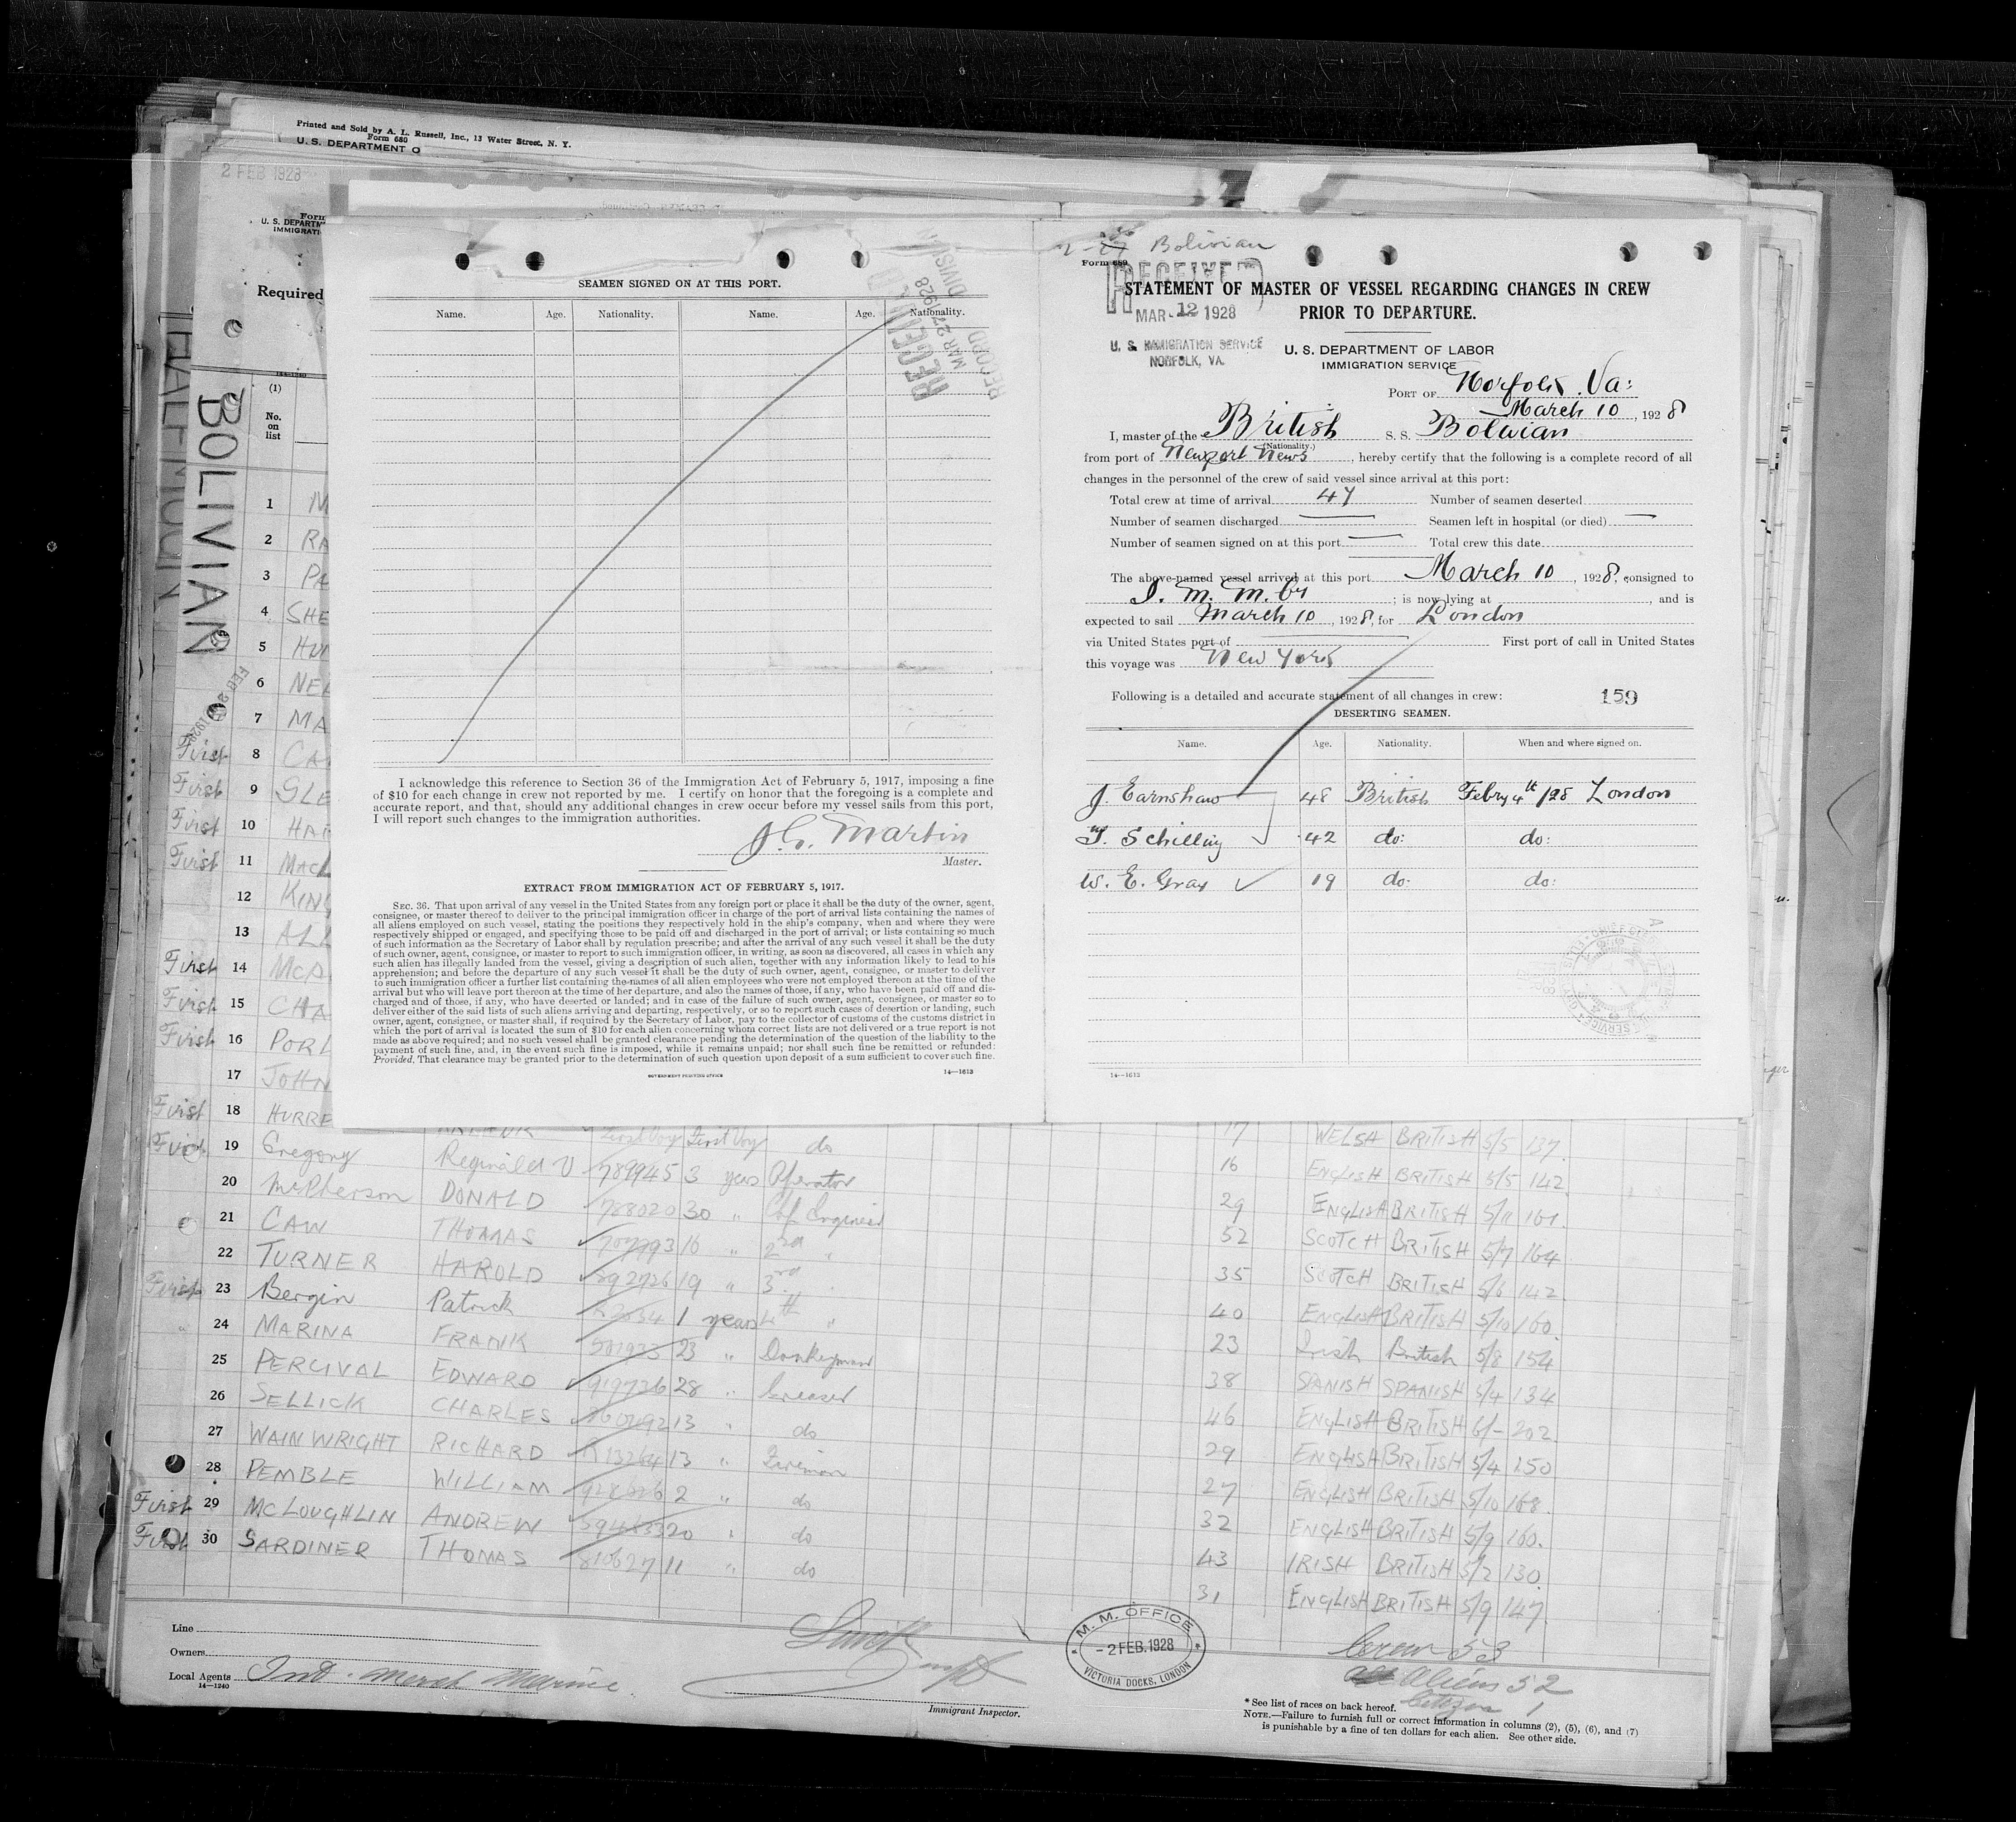 Printed and Sold by A. L. Russell, Inc., 13 Water Street, N. Y.
Form 680
U. S. DEPARTMENT O
2 FEB 1928
Form
U. S. DEPARTM
IMMIGRATI
Required
14-1240
BOLIVIAN
(1)
No. on list
1 M
2 RA
3 PA
4 SHE
5 HU
6 NE
7 MA
First 8 CA
First 9 SLE
First 10 HA
First 11 MAC
12 KIN
13 ALL
First 14 McA
First 15 CHA
First 16 PORL
17 JOHN
First 18 HURRE
SEAMEN SIGNED ON AT THIS PORT.
Name. Age. Nationality. Name. Age. Nationality.
RECEIVED
MAR 27 1928
RECORD DIVISI
I acknowledge this reference to Section 36 of the Immigration Act of February 5, 1917, imposing a fine
of $10 for each change in crew not reported by me. I certify on honor that the foregoing is a complete and
accurate report, and that, should any additional changes in crew occur before my vessel sails from this port,
I will report such changes to the immigration authorities.
J. G. Martin
Master.
EXTRACT FROM IMMIGRATION ACT OF FEBRUARY 5, 1917.
SEC. 36. That upon arrival of any vessel in the United States from any foreign port or place it shall be the duty of the owner, agent,
consignee, or master thereof to deliver to the principal immigration officer in charge of the port of arrival lists containing the names of
all aliens employed on such vessel, stating the positions they respectively hold in the ship's company, when and where they were
respectively shipped or engaged, and specifying those to be paid off and discharged in the port of arrival; or lists containing so much
of such information as the Secretary of Labor shall by regulation prescribe; and after the arrival of any such vessel it shall be the duty
of such owner, agent, consignee, or master to report to such immigration officer, in writing, as soon as discovered, all cases in which any
such alien has illegally landed from the vessel, giving a description of such alien, together with any information likely to lead to his
apprehension; and before the departure of any such vessel it shall be the duty of such owner, agent, consignee, or master to deliver
to such immigration officer a further list containing the names of all alien employees who were not employed thereon at the time of the
arrival but who will leave port thereon at the time of her departure, and also the names of those, if any, who have been paid off and dis-
charged and of those, if any, who have deserted or landed; and in case of the failure of such owner, agent, consignee, or master so to
deliver either of the said lists of such aliens arriving and departing, respectively, or so to report such cases of desertion or landing, such
owner, agent, consignee, or master shall, if required by the Secretary of Labor, pay to the collector of customs of the customs district in
which the port of arrival is located the sum of $10 for each alien concerning whom correct lists are not delivered or a true report is not
made as above required; and no such vessel shall be granted clearance pending the determination of the question of the liability to the
payment of such fine, and, in the event such fine is imposed, while it remains unpaid; nor shall such fine be remitted or refunded:
Provided, That clearance may be granted prior to the determination of such question upon deposit of a sum sufficient to cover such fine.
GOVERNMENT PRINTING OFFICE 14-1613
Bolivian
Form 689
RECEIVED
MAR 12 1928
U. S. IMMIGRATION SERVICE
NORFOLK, VA.
STATEMENT OF MASTER OF VESSEL REGARDING CHANGES IN CREW
PRIOR TO DEPARTURE.
U. S. DEPARTMENT OF LABOR
IMMIGRATION SERVICE
PORT OF Norfolk Va:
March 10, 1928
I, master of the British S. S. Bolivian
(Nationality.)
from port of Newport News, hereby certify that the following is a complete record of all
changes in the personnel of the crew of said vessel since arrival at this port:
Total crew at time of arrival 47 Number of seamen deserted
Number of seamen discharged — Seamen left in hospital (or died) —
Number of seamen signed on at this port — Total crew this date
The above-named vessel arrived at this port March 10, 1928, consigned to
I. M. M. Co; is now lying at , and is
expected to sail March 10, 1928, for London
via United States port of — First port of call in United States
this voyage was New York
Following is a detailed and accurate statement of all changes in crew: 159
DESERTING SEAMEN.
Name. Age. Nationality. When and where signed on.
J. Earnshaw 48 British Febry 4th /28 London
T. Schilling 42 do: do:
W. E. Gray 19 do: do:
14-1613
17 WELSH BRITISH 5/5 137
First 19 Gregory Reginald V 789945 3 years Operator 16 ENGLISH BRITISH 5/5 142
20 McPherson DONALD 788020 30 " Chf Engineer 29 ENGLISH BRITISH 5/11 161
21 CAW THOMAS 16 " 2nd " 52 SCOTCH BRITISH 5/7 164
22 TURNER HAROLD 892726 19 " 3rd " 35 SCOTCH BRITISH 5/6 142
First 23 Bergin Patrick 1 years 4th " 40 ENGLISH BRITISH 5/10 160
24 MARINA FRANK 501933 23 " Donkeyman 23 Irish British 5/8 154
25 PERCIVAL EDWARD 919726 28 " Greaser 38 SPANISH SPANISH 5/4 134
26 SELLICK CHARLES 13 " do 46 ENGLISH BRITISH 6/- 202
27 WAINWRIGHT RICHARD 13 " Fireman 29 ENGLISH BRITISH 5/4 150
28 PEMBLE WILLIAM 2 " do 27 ENGLISH BRITISH 5/10 168
First 29 McLOUGHLIN ANDREW 20 " do 32 ENGLISH BRITISH 5/9 160
First 30 SARDINER THOMAS 810627 11 " do 43 IRISH BRITISH 5/2 130
31 ENGLISH BRITISH 5/9 147
Line
Owners
Local Agents Intl. Merch Marine
14-1240
Immigrant Inspector.
M. M. OFFICE
-2 FEB. 1928
VICTORIA DOCKS, LONDON
Crew 53
Aliens 52
Citizen 1
* See list of races on back hereof.
NOTE.—Failure to furnish full or correct information in columns (2), (5), (6), and (7)
is punishable by a fine of ten dollars for each alien. See other side.